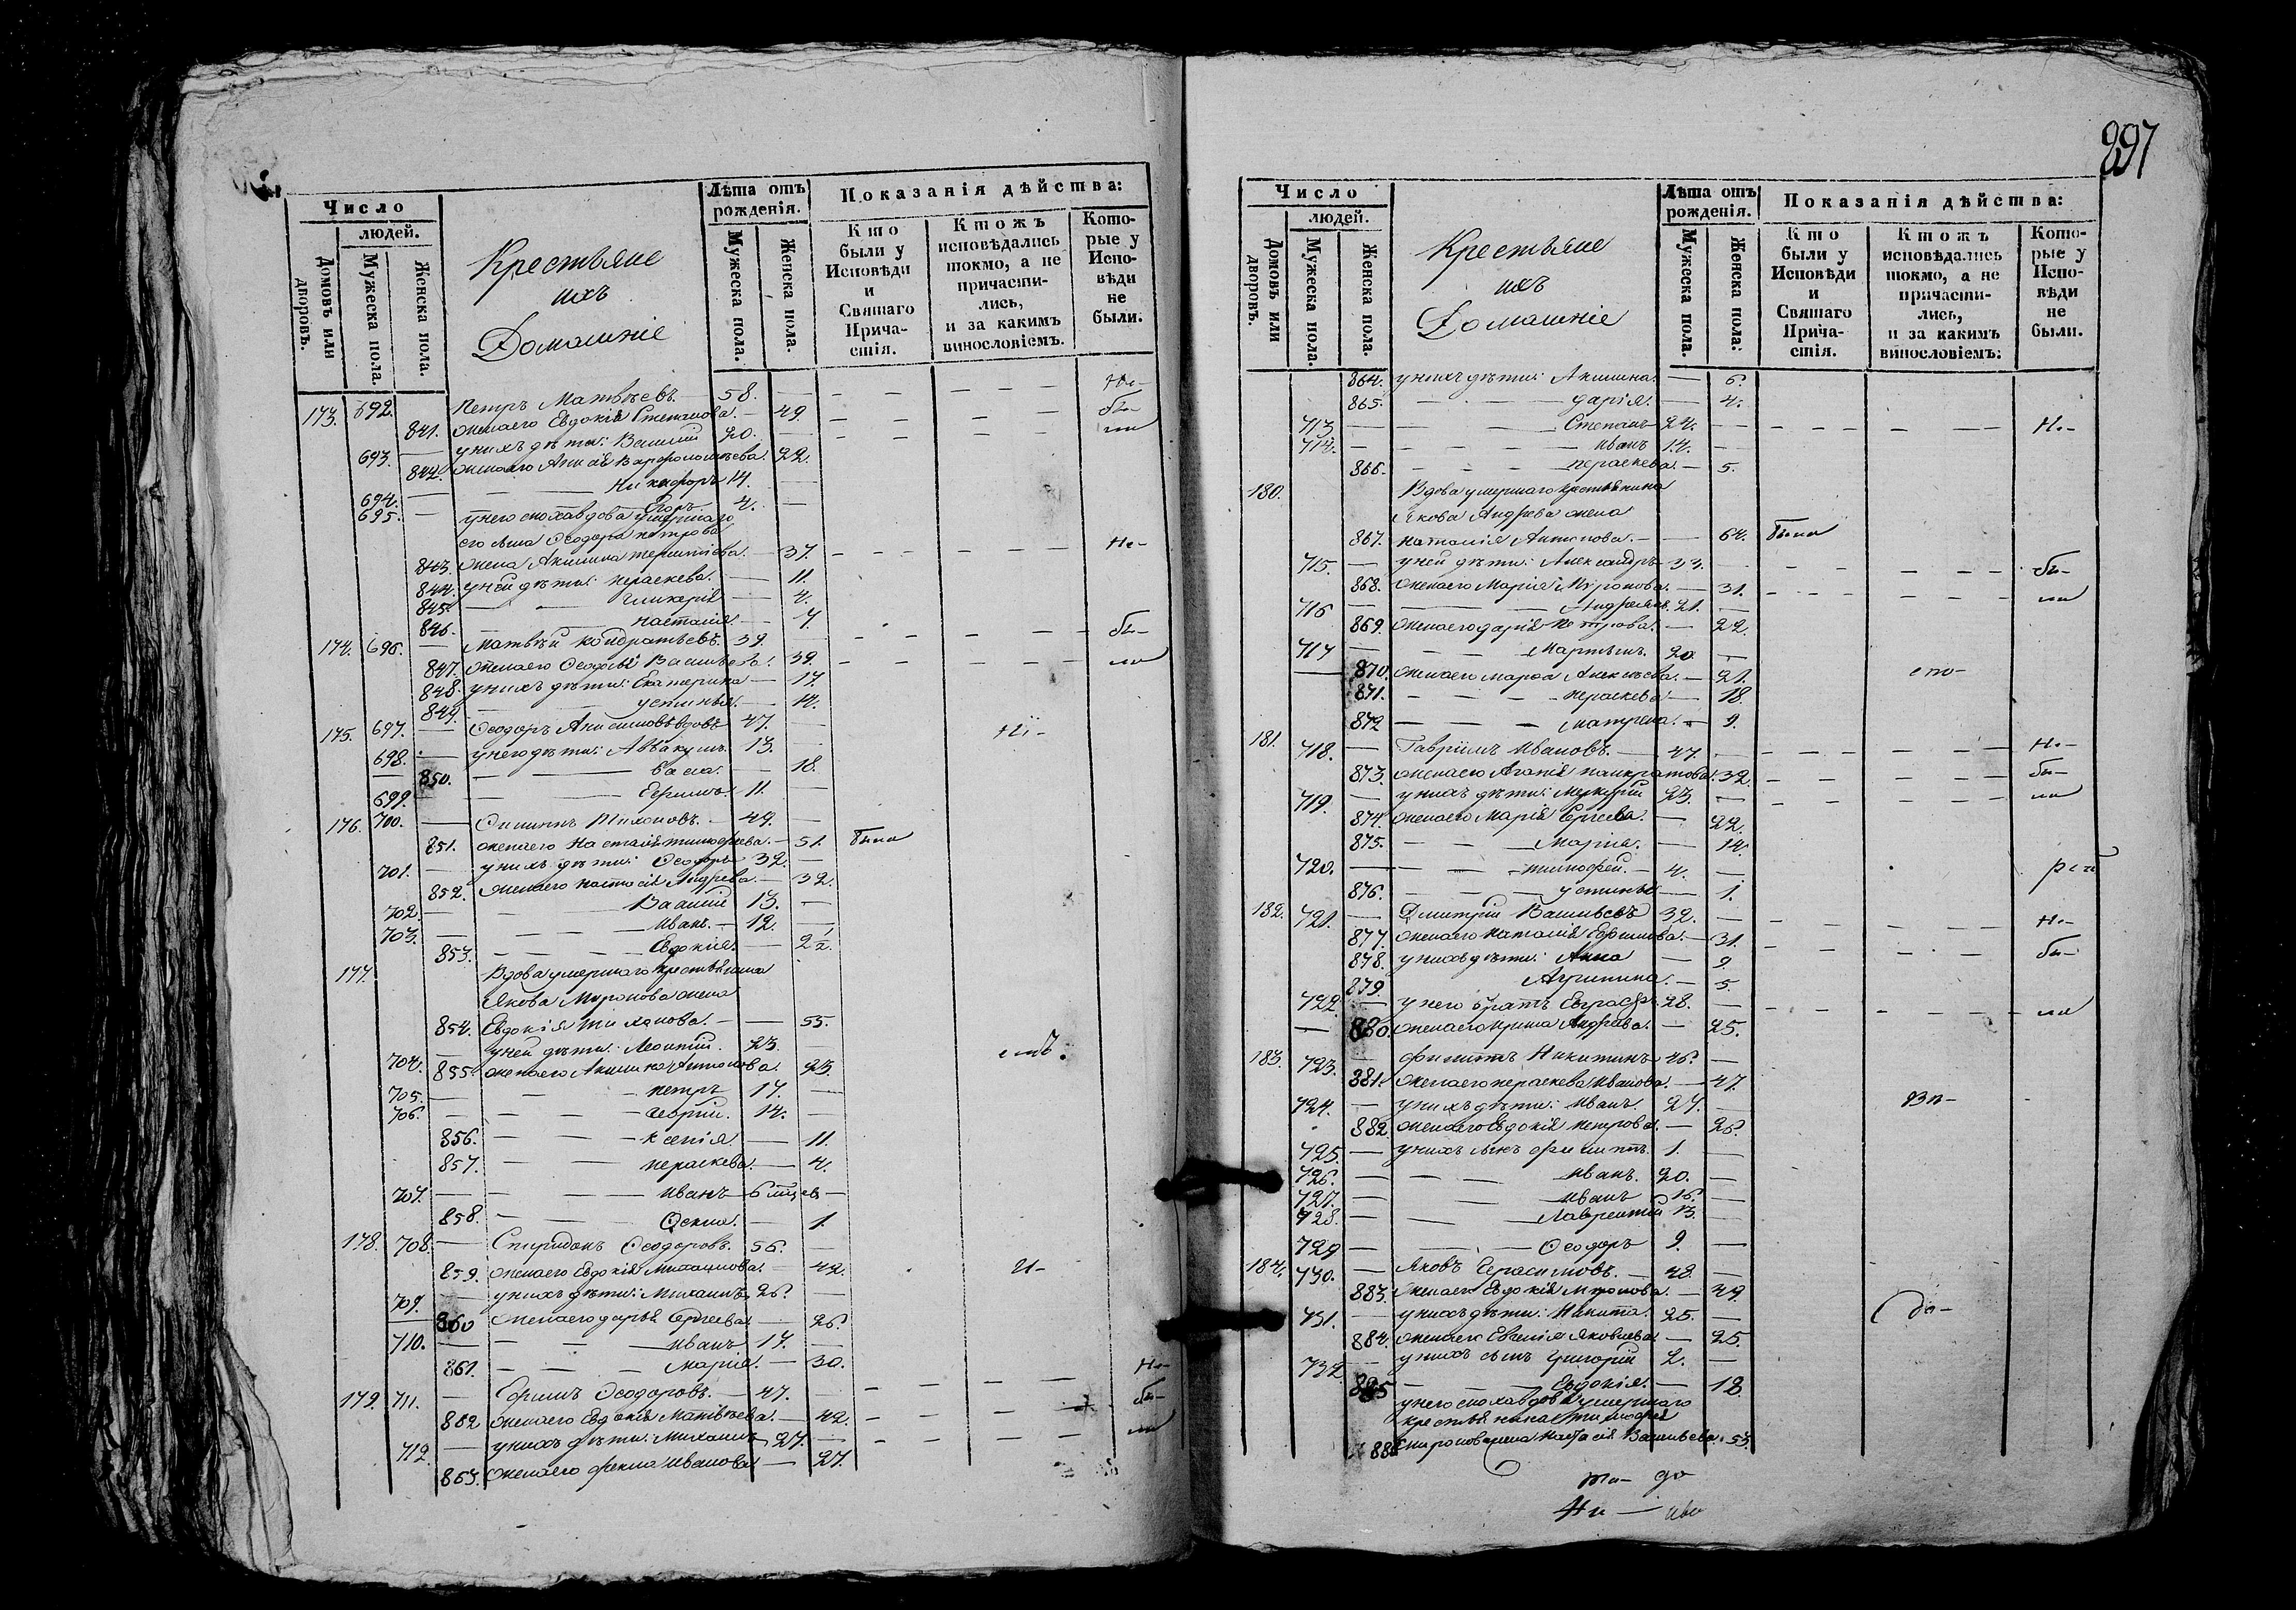 Число
людей.
Домовъ или дворовъ.
Мужеска пола.
Женска пола.
Крестьяне
ихъ
Домашніе
Лѣта отъ рожденія.
Мужеска пола.
Женска пола.
Показанія дѣйства:
Кто были у Исповѣди и Святаго Причастія.
Ктожъ исповѣдались токмо, а не причастились, и за какимъ винословіемъ.
Которые у Исповѣди не были.
173. 692. Петръ Матвѣевъ 58. Не-
841. жена его Евдокія Степанова. 49. бы-
693. у нихъ дѣти: Василий 20. ли
842. жена его Анна Варфоломѣева. 22.
694. Никифоръ 14.
695. Егоръ 4.
у него сноха вдова умершаго
его сына Ѳеодора Петрова
843. жена Акилина Терентіева. 37. Не-
844. у ней дѣти: Пераскева. 11.
845. Гликерія 4.
846. Наталія. 7.
174. 696. Матвѣй Кондратьевъ. 39. бы-
847. жена его Ѳеодосія Васильева. 39. ли
848. у нихъ дѣти: Екатерина 17.
849. Устинья. 14.
175. 697. Ѳеодоръ Анисимовъ вдовъ 47. Ни-
698. у него дѣти: Аввакумъ. 13.
850. Васса. 18.
699. Ефимъ. 11.
176. 700. Филиппъ Тихоновъ. 49.
851. жена его Наталія Тимофеева. 51. была
701. у нихъ дѣти: Ѳеодоръ 32.
852. жена его Настасія Андрева. 32.
702. Василій 13.
703. Иванъ. 12.
853. Евдокія. 2 1/2.
177. Вдова умершаго крестьянина
Якова Миронова жена
854. Евдокія Тиханова. 55.
704. у ней дѣти: Леонтий. 23.
855. жена его Акилина Антонова. 23.
705. Петръ 17.
706. 14.
856. Ксенія. 11.
857. Пераскева. 4.
707. Иванъ 6 мцев
858. Ѳекла. 1.
178. 708. Спиридонъ Ѳеодоровъ. 56.
859. жена его Евдокія 42. и-
709. у нихъ дѣти: Михаилъ 26.
860 жена его Дарья Сергеева. 26.
710. Иванъ 17.
861. Марія. 30.
179. 711. Ефимъ Ѳеодоровъ. 47. Не-
862 жена его Евдокія Матвѣева. 42. бы-
712. у нихъ дѣти: Михаилъ 27. ли
863. жена его Фекла Иванова. 27.
297
Число
людей.
Домовъ или дворовъ.
Мужеска пола.
Женска пола.
Крестьяне
ихъ
Домашніе
Лѣта отъ рожденія.
Мужеска пола.
Женска пола:
Показанія дѣйства:
Кто были у Исповѣди и Святаго Причастія.
Ктожъ исповѣдались токмо, а не причастились, и за какимъ винословіемъ:
Которые у Исповѣди не были.
864. у нихъ дѣти: Акилина. 6.
865. Дарія. 4.
713 Степанъ 24. Не-
714. Иванъ 14.
866. Пераскева. 5.
180. Вдова умершаго крестьянина
Якова Андрева жена
867. Наталія Антонова. 64. была
715. у ней дѣти: Александръ 33. бы-
868. жена его Марія Миронова. 31. ли
716 Андреянъ. 21.
869. жена его Дарія Петрова. 22.
717 Мартынъ. 20.
870. жена его Марѳа Алексѣева. 21. сто-
871. Пераскева 18.
872 Матрена. 9.
181. 718. Гавріилъ Ивановъ. 47. Не-
873. жена его Агапія Панкратова. 32. бы-
719. у нихъ дѣти: Меркурій 23. ли
874. жена его Марія Сергеева. 22.
875. Марія. 14.
720. Тимофей. 4.
876. Устинья 1.
182. 721. Дмитрий Васильевъ 32. Не-
877. жена его Наталія Ефимова. 31.
878. у нихъ дѣти: Анна 9. бы-
879. Агрипина. 5.
722. у него братъ Евграфъ 28. ли
880. жена его Ирина Андрева. 25.
183. 723. Филиппъ Никитинъ 46.
881. жена его Пераскева Иванова. 47.
724. у нихъ дѣти: Иванъ. 27.
882. жена его Евдокія Петрова. 26.
725. у нихъ сынъ Филиппъ. 1.
726. Иванъ. 20.
727. Иванъ 16.
728. Лаврентій 13.
729 Ѳеодоръ 9.
184. 730. Яковъ Герасимовъ. 48.
883. жена его Евдокія Миронова. 49.
731. у нихъ дѣти: Никита. 25.
884. жена его Евгенія Яковлева. 25.
732 у нихъ сынъ Григорій 2.
885 Евдокія. 18.
у него сноха вдова умершаго
крестьянина Тимофея
886 жена Настасія Васильева. 53.